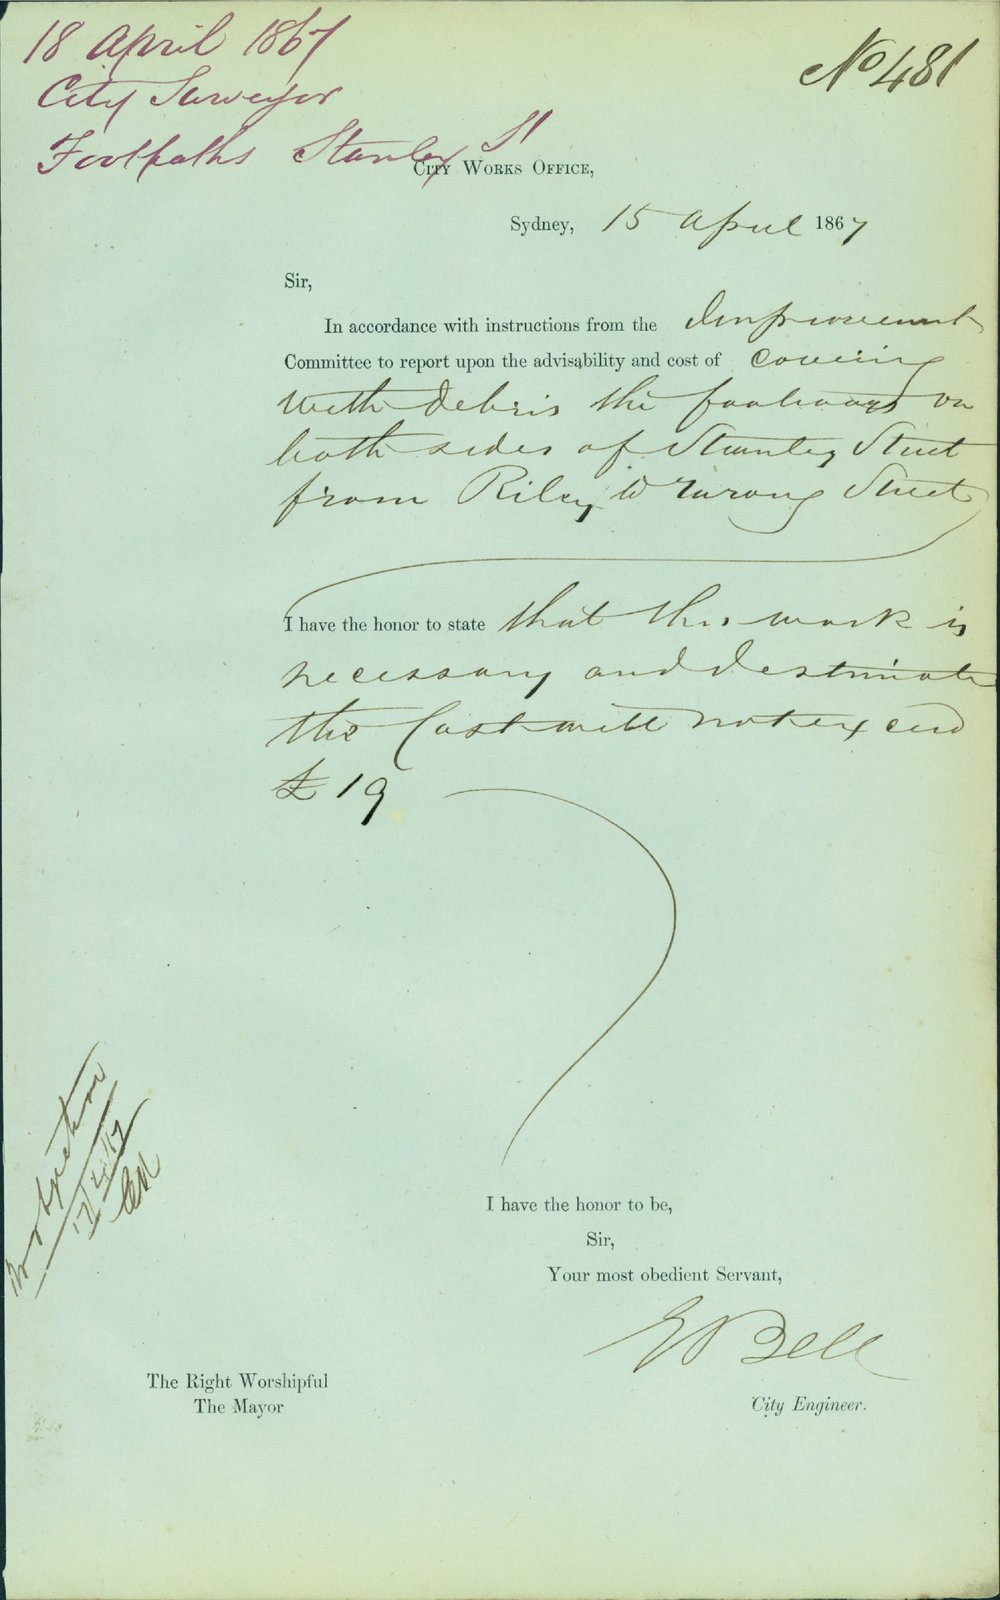 18 April 1867
City Surveyor
Footpaths Stanley St
No 481
City Works Office,
Sydney, 15 April 1867
Sir,
In accordance with instructions from the Improvement
Committee to report upon the advisability and cost of covering
with debris the footways on
both sides of Stanley Street
from Riley to Yurong Street
I have the honor to state that this work is
necessary and I estimate
the Cost will not exceed
£19
17/4/67
I have the honor to be,
Sir,
Your most obedient Servant,
E Bell
The Right Worshipful
The Mayor
City Engineer.